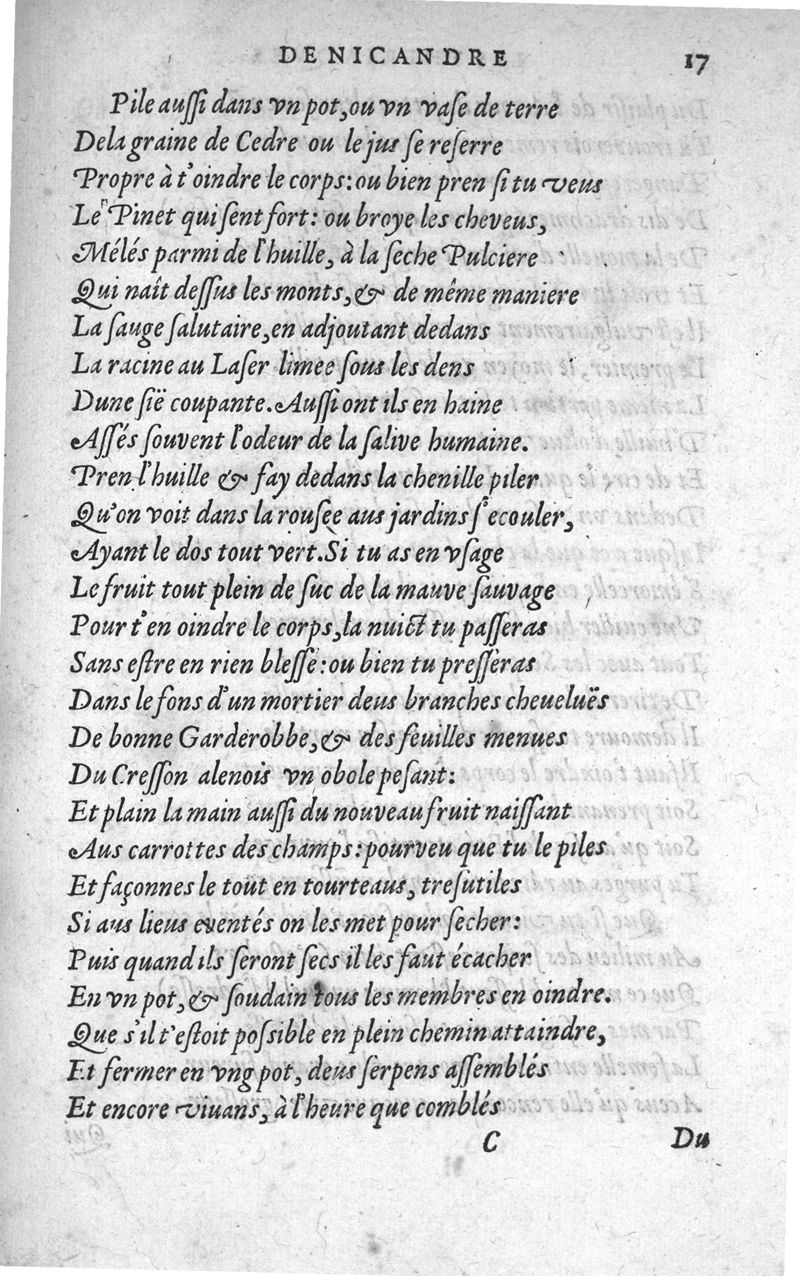 DE NICANDRE 17
Pile auſſi dans vn pot, ou vn vaſe de terre
Dela graine de Cedre ou le jus ſe reſerre
Propre à t'oindre le corps: ou bien pren ſi tu veus
Le Pinet qui ſent fort: ou broye les cheveus,
Mélés parmi de l'huille, à la ſeche Pulciere
Qui naît deſſus les monts, & de même maniere
La ſauge ſalutaire, en adjoutant dedans
La racine au Laſer limee ſous les dens
Dune ſië coupante. Auſſi ont ils en haine
Aſſés ſouvent l'odeur de la ſalive humaine.
Pren l'huille & fay dedans la chenille piler
Qu'on voit dans la rouſee aus jardins ſ'ecouler,
Ayant le dos tout vert. Si tu as en vſage
Le fruit tout plein de ſuc de la mauve ſauvage
Pour t'en oindre le corps, la nuict tu paſſeras
Sans eſtre en rien bleſſé: ou bien tu preſſeras
Dans le fons d'un mortier deus branches cheueluës
De bonne Garderobbe, & des feuilles menues
Du Creſſon alenois vn obole peſant:
Et plain la main auſſi du nouveau fruit naiſſant
Aus carrottes des champs: pourveu que tu le piles
Et façonnes le tout en tourteaus, treſutiles
Si aus lieus eventés on les met pour ſecher:
Puis quand ils ſeront ſecs il les faut écacher
En vn pot, & ſoudain tous les membres en oindre.
Que s'il t'eſtoit poſsible en plein chemin attaindre,
Et fermer en vng pot, deus ſerpens aſſemblés
Et encore viuans, à l'heure que comblés
C Du